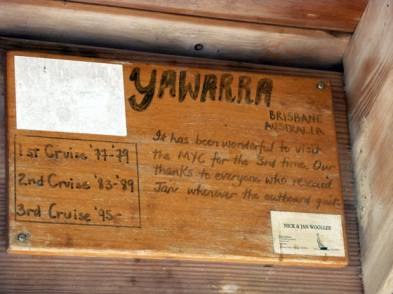 YAWARRA
BRISBANE
AUSTRALIA
It has been wonderful to visit
the MYC for the 3rd time. Our
thanks to everyone who rescued
Jan whenever the outboard quit.
1st Cruise '77-'79
2nd Cruise '83-'89
3rd Cruise '95-
NICK & JAN WOOLLER